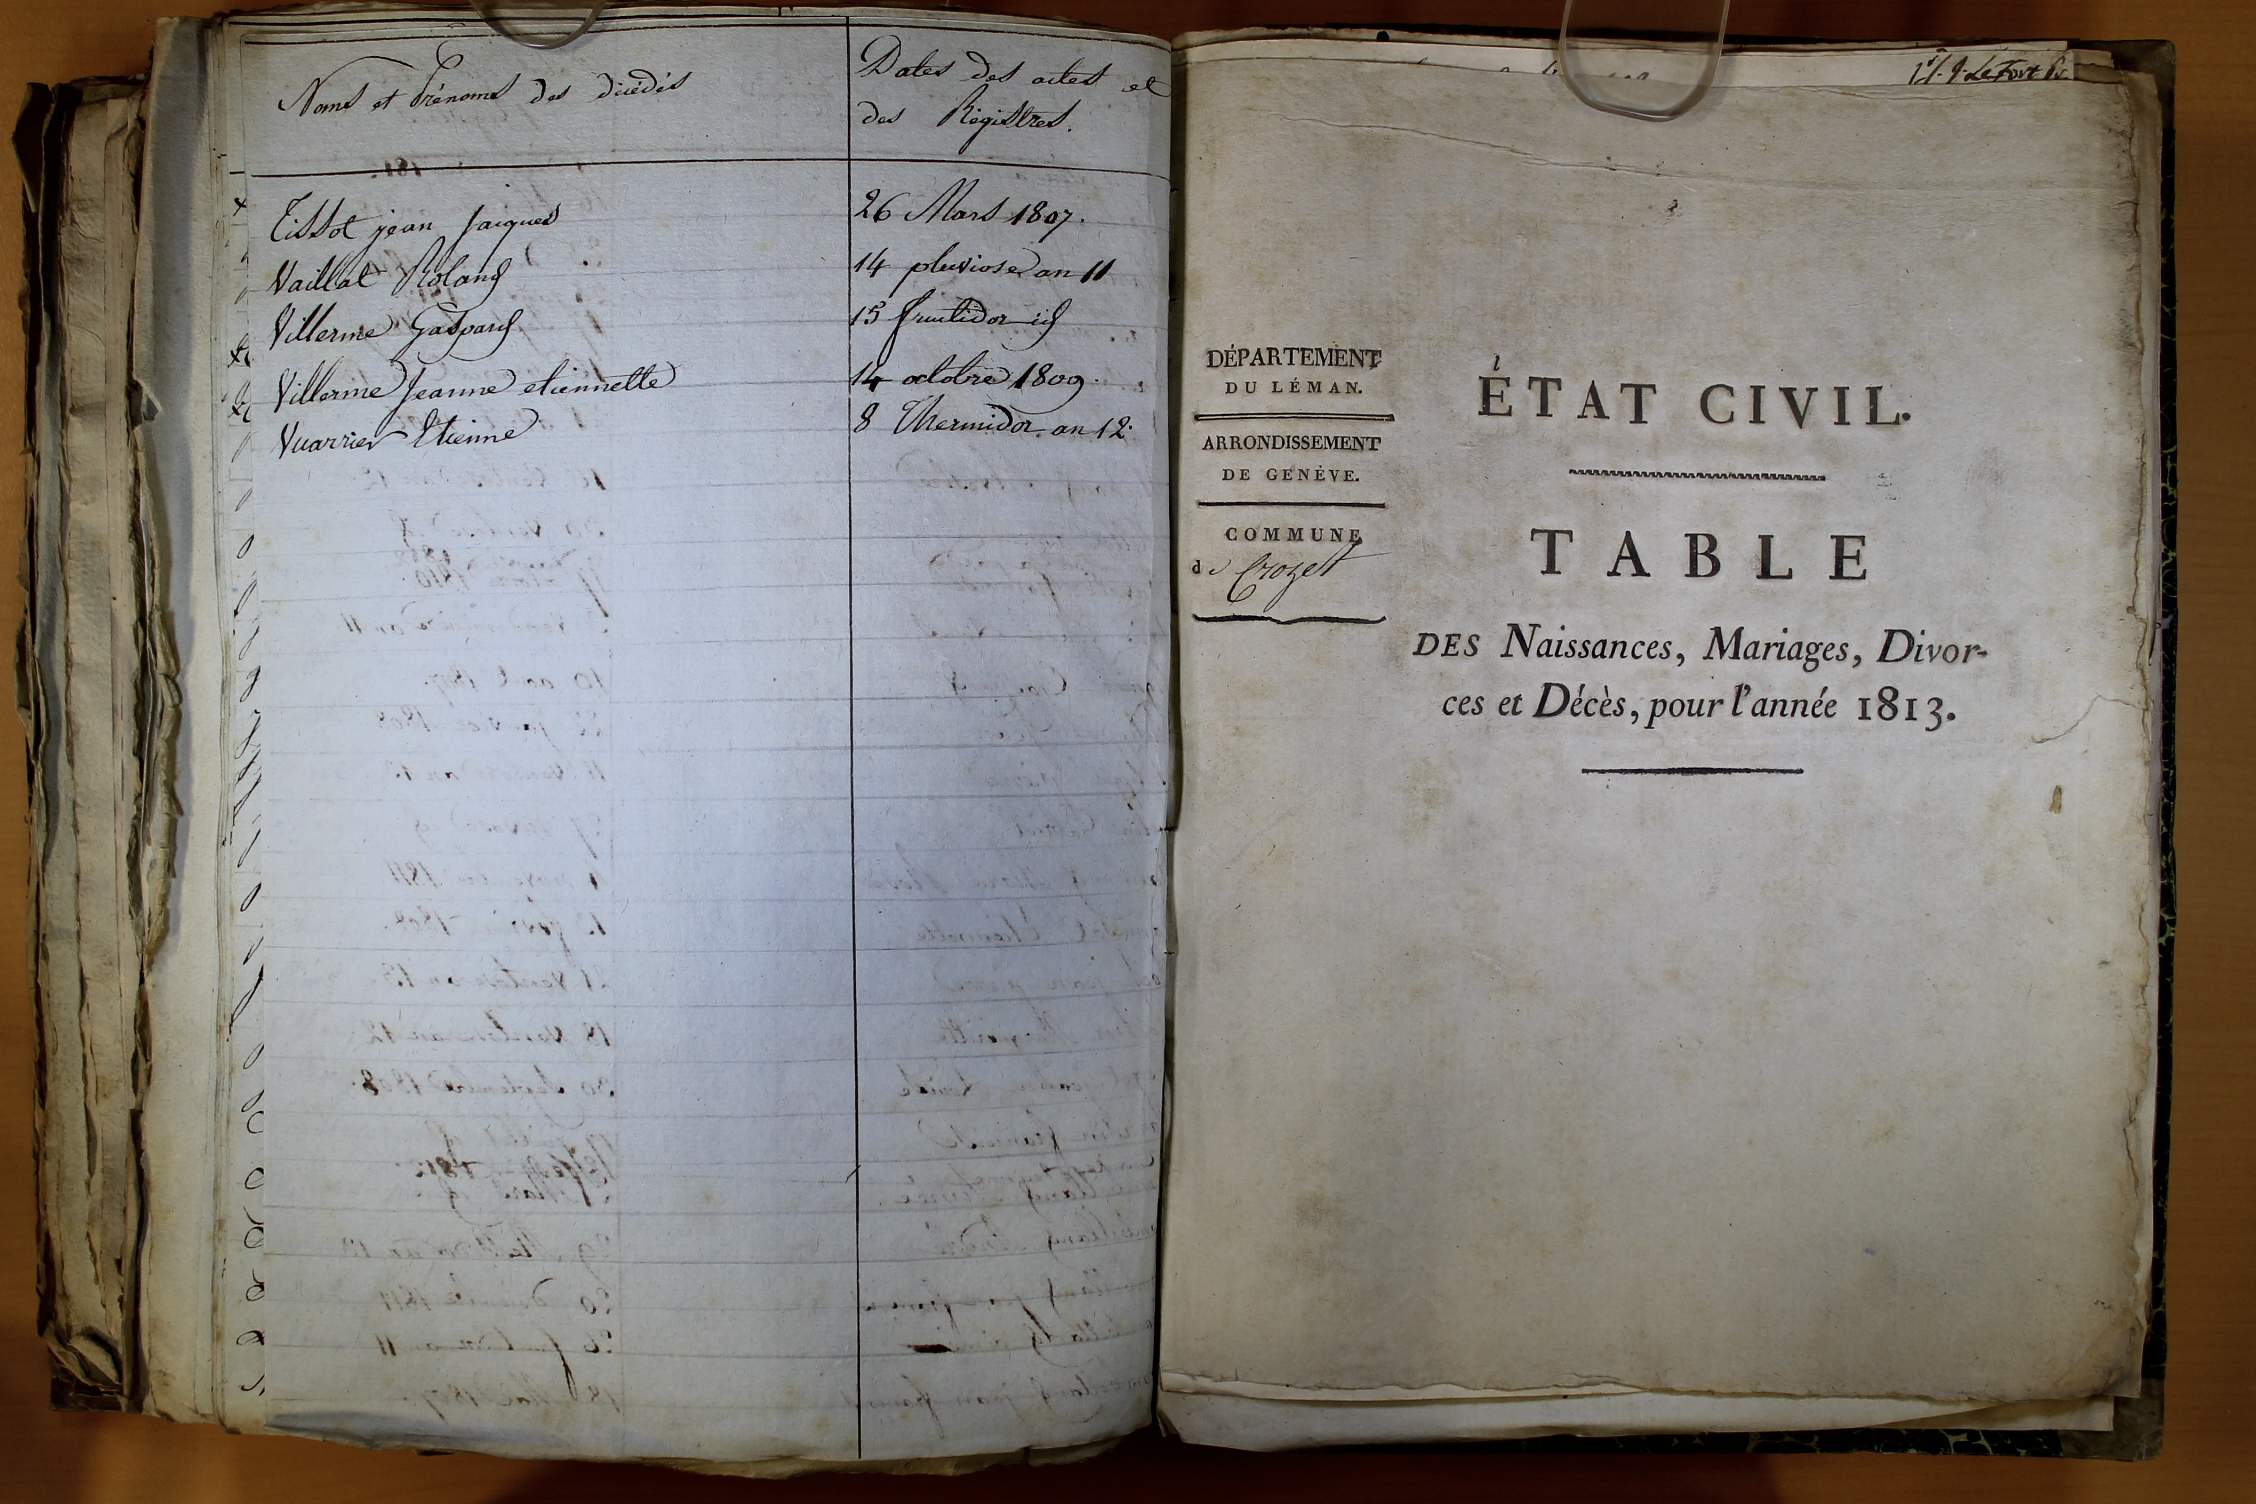 Noms et Prénoms des décédés
Dates des actes et
des Régistres.
Tissot jean Jaiques
26 Mars 1807.
Vaillat Roland
14 pluviose an 11
Villerme Gaspard
15 fructidor id
Villerme Jeanne etiennette
14 octobre 1809.
Vuarrier Etienne
8 Thermidor an 12.
DÉPARTEMENT
DU LÉMAN.
ARRONDISSEMENT
DE GENÈVE.
COMMUNE
de Crozet
ÉTAT CIVIL.
TABLE
DES Naissances, Mariages, Divor-
ces et Décès, pour l'année 1813.